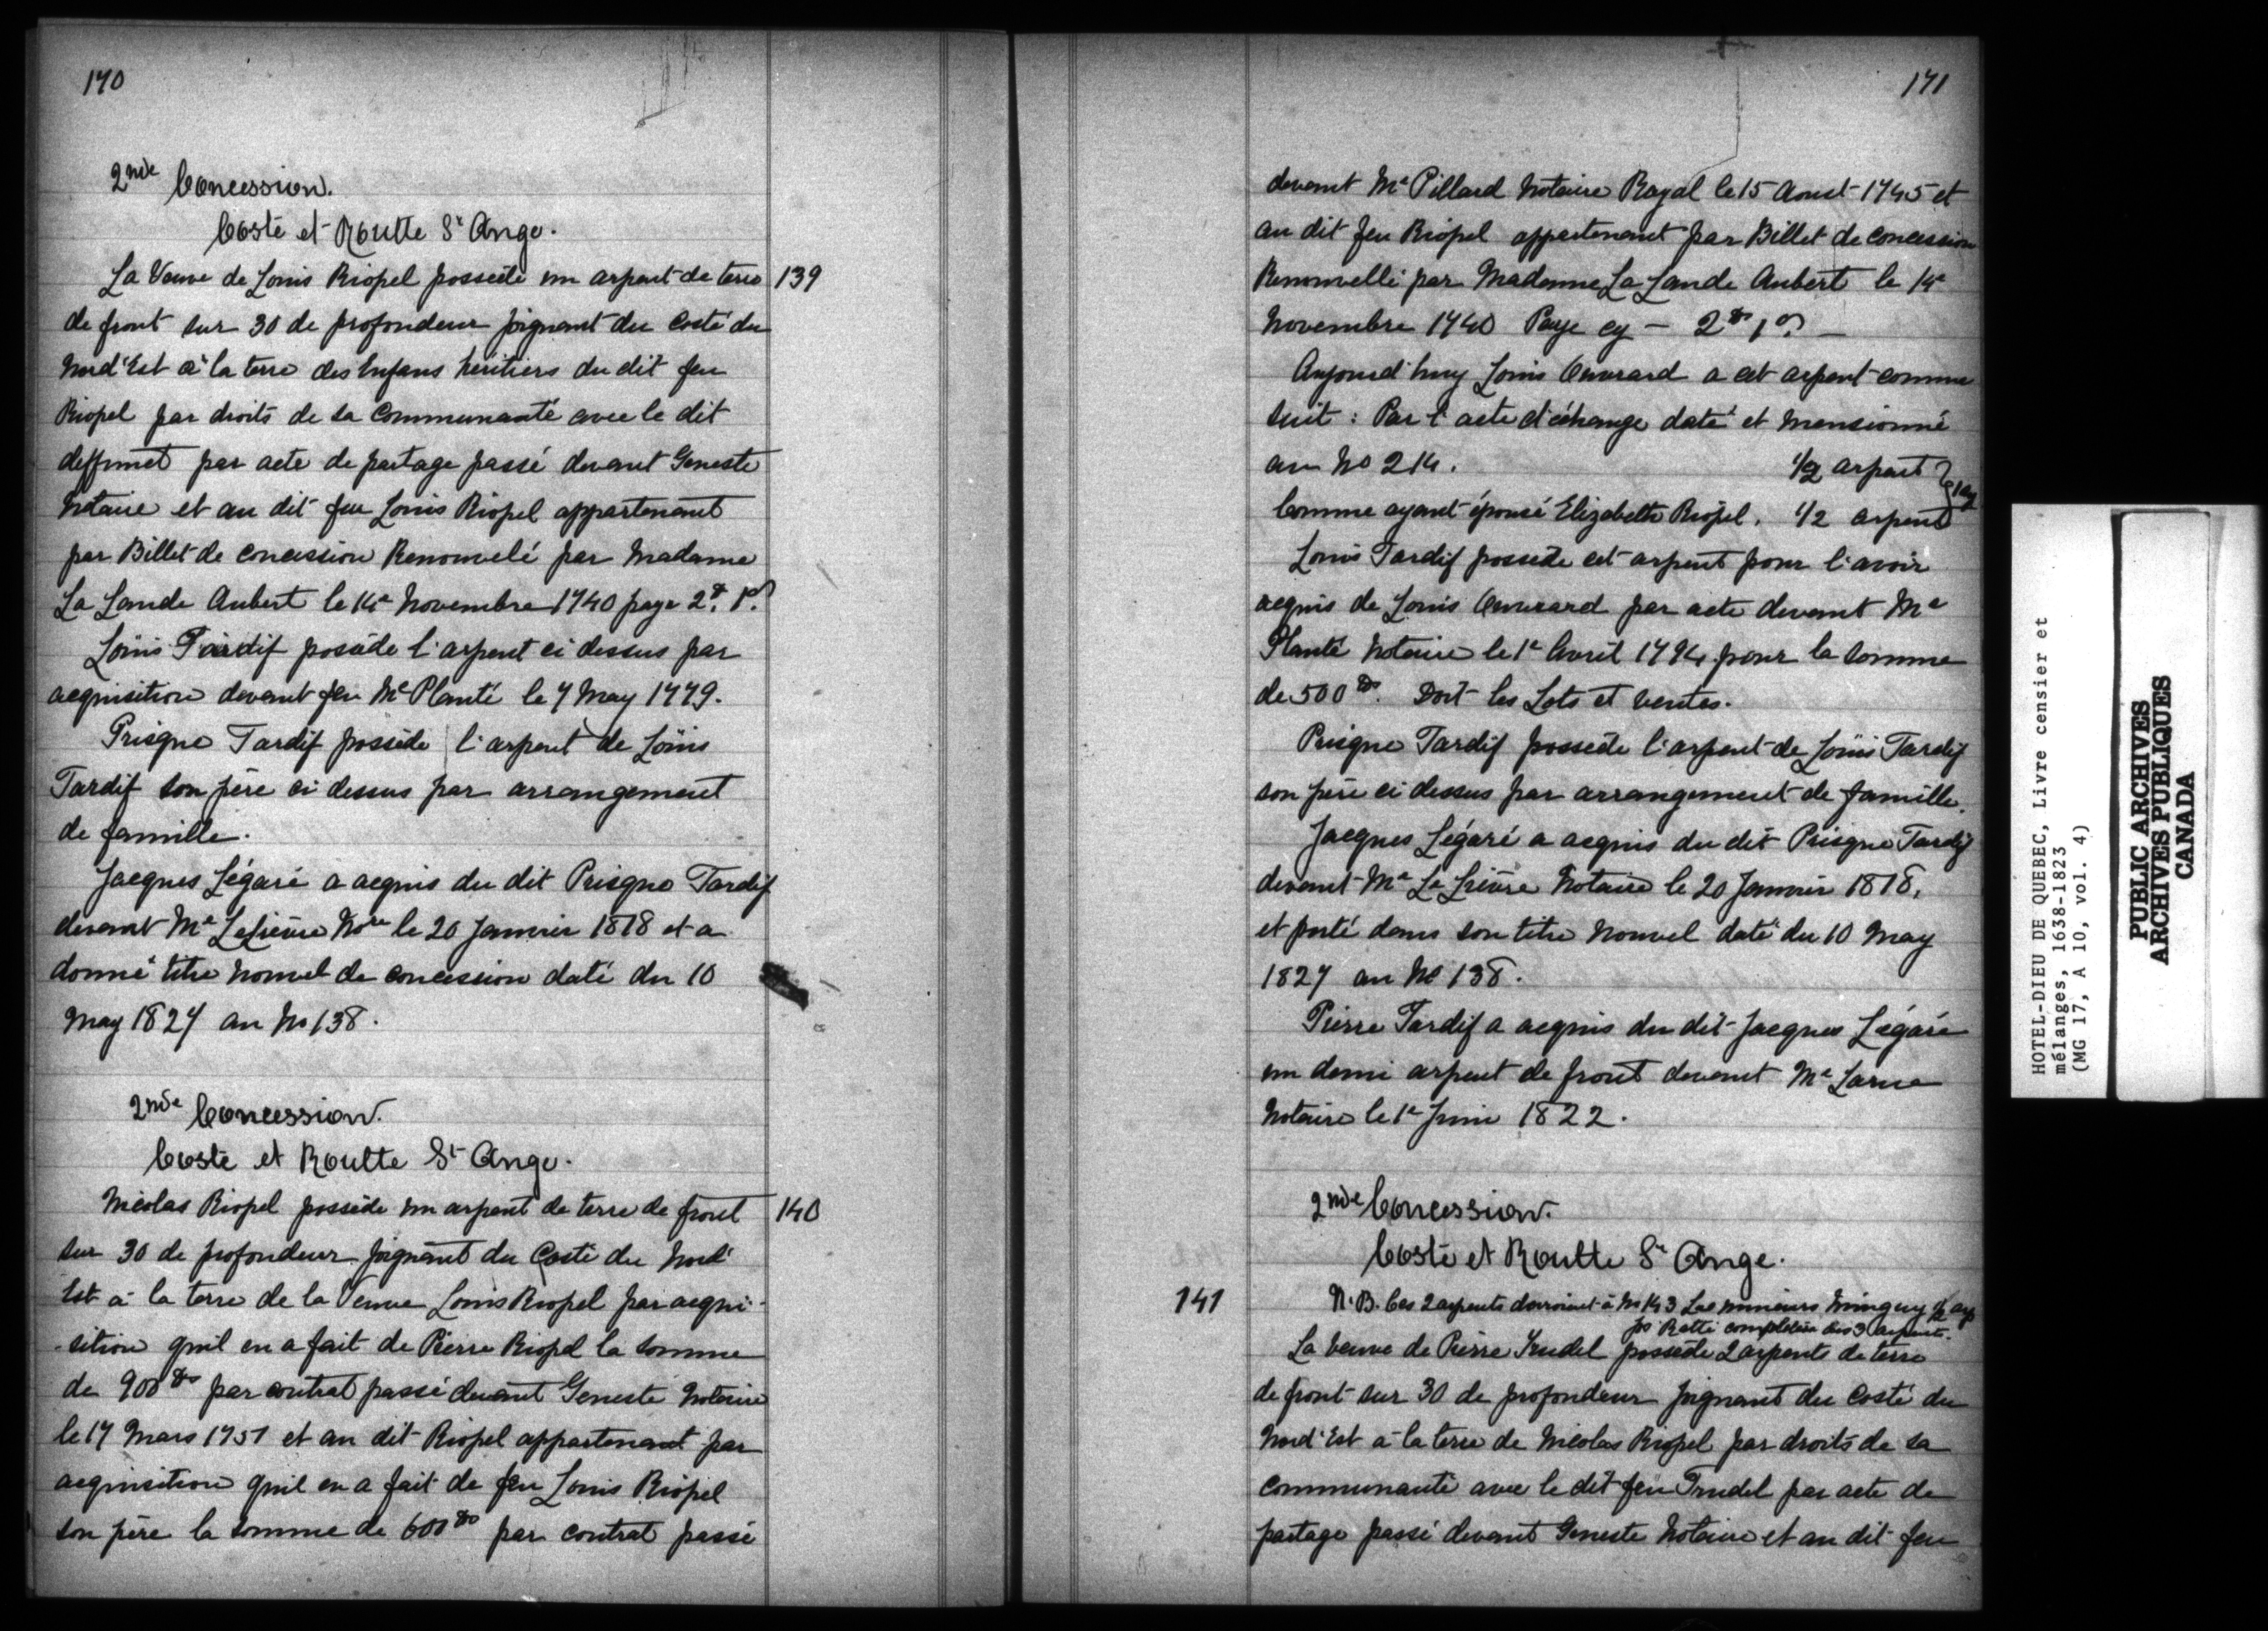 170
2nde Concession.
Costé et Routte St Ange.
La Veuve de Louis Riopel possède un arpent de terre 139
de front sur 30 de profondeur joignant du costé du
Nord'Est à la terre des Enfans héritiers du dit feu
Riopel par droits de sa Communauté avec le dit
deffunct par acte de partage passé devant Geneste
Notaire et au dit feu Louis Riopel appartenant
par Billet de concession Renouvelé par Madame
La Lande Aubert le 14e Novembre 1740 paye 2# 1s.
Loüis Tardif possède l'arpent ci dessus par
acquisition devant feu Me Planté le 7 May 1779.
Prisque Tardif possède l'arpent de Loüis
Tardif son père ci dessus par arrangement
de famille.
Jacques Légaré a acquis du dit Prisque Tardif
devant Me Lelièvre Nore le 20 Janvier 1818 et a
donné titre nouvel de concession daté du 10
May 1827 au No 138.
2nde Concession.
Costé et Routte St Ange.
Nicolas Riopel possède un arpent de terre de front 140
sur 30 de profondeur joignant du Costé du Nord'
Est à la terre de la Veuve Louis Riopel par acqui-
-sition quil en a fait de Pierre Riopel la somme
de 900# par contrat passé devant Geneste Notaire
le 17 Mars 1751 et au dit Riopel appartenant par
acquisition quil en a fait de feu Louis Riopel
son père la somme de 600# par contrat passé
171
devant Me Pillard Notaire Royal le 15 Aoust 1745 et
au dit feu Riopel appartenant par Billet de concession
Renouvellé par Madame La Lande Aubert le 14e
Novembre 1740 Paye cy — 2# 1s —
Aujourd'huy Louis Ouvrard a cet arpent comme
suit : Par l'acte d'échange daté et mensionné
au No 214. 1/2 arpent
Comme ayant épousé Elizabeth Riopel. 1/2 arpent
Louis Tardif possède cet arpent pour l'avoir
acquis de Louis Ouvrard par acte devant Me
Planté Notaire le 1e Avril 1794 pour la somme
de 500#. Doit les Lots et ventes.
Prisque Tardif possède l'arpent de Loüis Tardif
son père ci dessus par arrangement de famille.
Jacques Légaré a acquis du dit Prisque Tardif
devant Me Le Lièvre Notaire le 20 Janvier 1818,
et porté dans son titre nouvel daté du 10 May
1827 au No 138.
Pierre Tardif a acquis du dit Jacques Légaré
un demi arpent de front devant Me Larue
Notaire le 1e Juin 1822.
2nde Concession.
Costé et Routte St Ange.
141 N.B. Ces 2 arpents devroient à No 143 Les mineurs Minguy 1/2 arp
Jos Ratté complètera les 3 arpents.
La veuve de Pierre Trudel possède 2 arpents de terre
de front sur 30 de profondeur joignant du costé du
Nord'Est à la terre de Nicolas Riopel par droits de sa
communauté avec le dit feu Trudel par acte de
partage passé devant Geneste Notaire et au dit feu
HOTEL-DIEU DE QUEBEC, Livre censier et
mélanges, 1638-1823
(MG 17, A 10, vol. 4)
PUBLIC ARCHIVES
ARCHIVES PUBLIQUES
CANADA